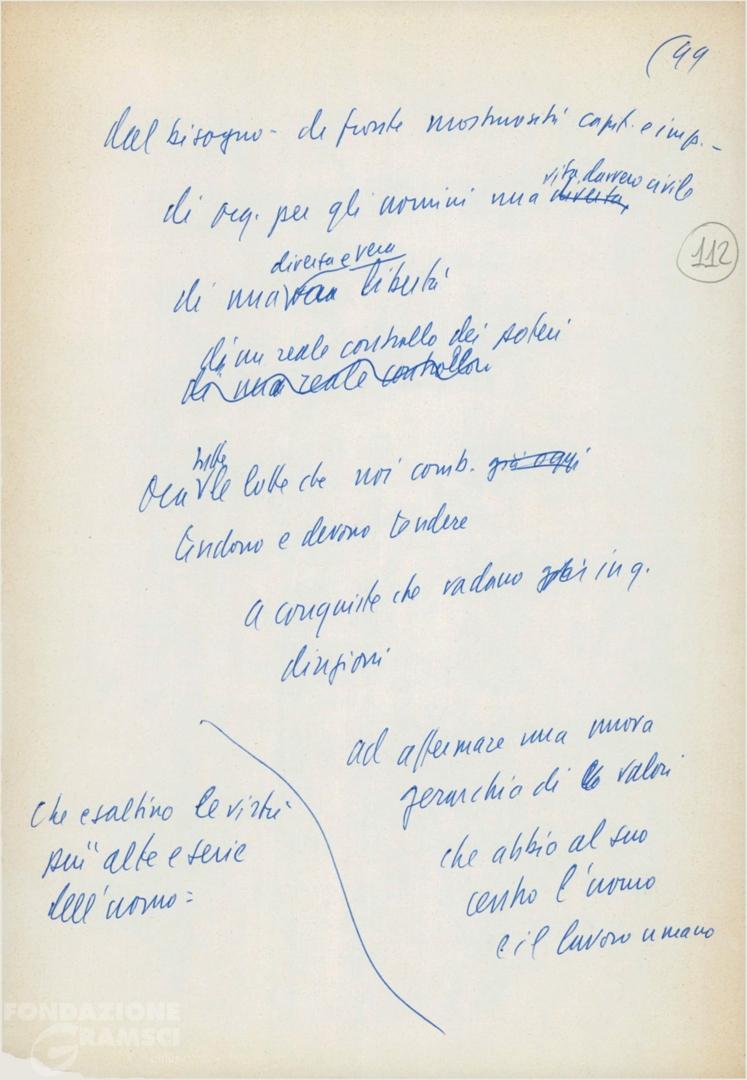 (99
dal bisogno - di fronte mostruosità capit. e imp. -
vita davvero civile
di org. per gli uomini una diversa,
112
diversa e vera
di una libertà
di un reale controllo dei poteri
di una reale controllo
tutte
Ora le lotte che noi comb. già oggi
tendono e devono tendere
a conquiste che vadano già in q.
direzioni
ad affermare una nuova
gerarchia di valori
che abbia al suo
centro l'uomo
e il lavoro umano
che esaltino le virtù
più alte e serie
dell'uomo =
FONDAZIONE
GRAMSCI